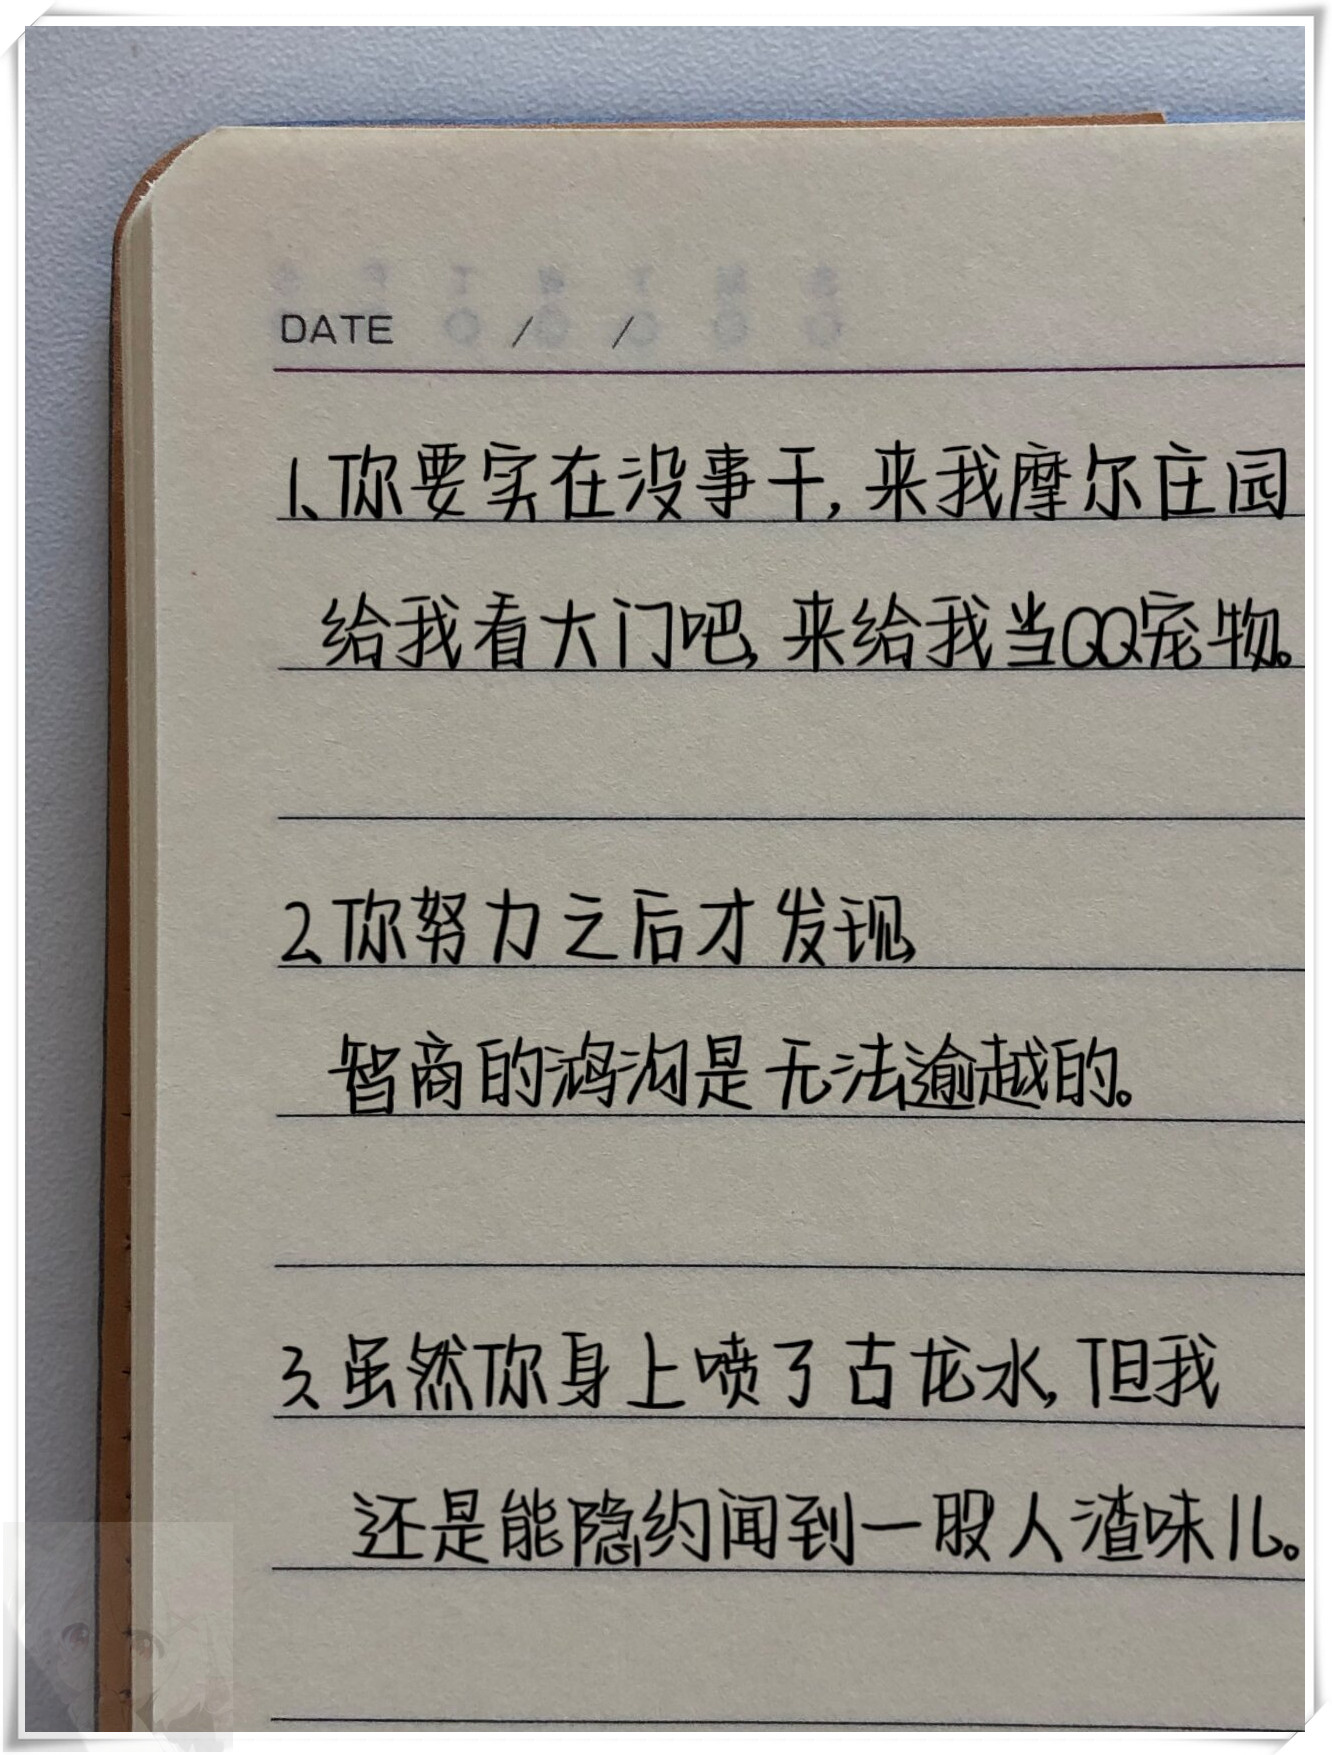 DATE / /
1、你要实在没事干,来我摩尔庄园
给我看大门吧,来给我当QQ宠物。
2、你努力之后才发现,
智商的鸿沟是无法逾越的。
3、虽然你身上喷了古龙水,但我
还是能隐约闻到一股人渣味儿。